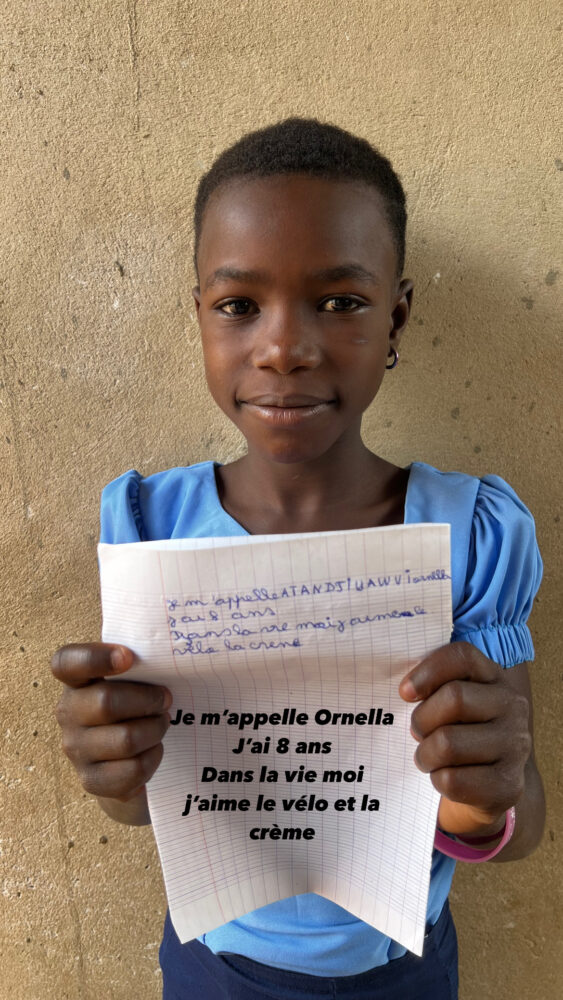 je m'appelle ATANDJI YAWVI ornella
j'ai 8 ans
Dans la vie moi j'aime le
vélo la creme
Je m'appelle Ornella
J'ai 8 ans
Dans la vie moi
j'aime le vélo et la
crème